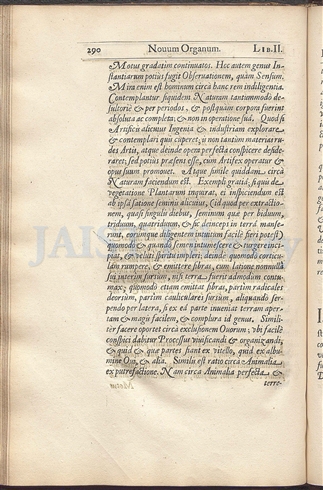 290 Nouum Organum. LIB. II.
Motus gradatim continuatos. Hoc autem genus In-
stantiarum potius fugit Obseruationem, quàm Sensum.
Mira enim est hominum circa hanc rem indiligentia.
Contemplantur siquidem Naturam tantummodò de-
sultoriè & per periodos, & postquam corpora fuerint
absoluta ac completa; & non in operatione suâ. Quod si
Artificis alicuius Ingenia & industriam explorare
& contemplari quis cuperet, is non tantùm materias ru-
des Artis, atque deinde opera perfecta conspicere deside-
raret; sed potiùs praesens esse, cum Artifex operatur &
opus suum promouet. Atque simile quiddam circa
Naturam faciendum est. Exempli gratiâ; si quis de
Vegetatione Plantarum inquirat, ei inspiciendum est
ab ipsâ satione seminis alicuius, (id quod per extractio-
nem, quasi singulis diebus, seminum quae per biduum,
triduum, quatriduum, & sic deinceps in terrâ manse-
runt, eorumque diligentem intuitum facilè fieri potest)
quomodò & quandò Semen intumescere & turgere inci-
piat, & veluti spiritu impleri; deinde quomodò corticu-
lam rumpere, & emittere fibras, cum latione nonnullâ
sui interim sursùm, nisi terra fuerit admodùm contu-
max; quomodò etiam emittat fibras, partim radicales
deorsùm, partim cauliculares sursùm, aliquandò ser-
pendo per latera, si ex eâ parte inueniat terram aper-
tam & magis facilem, & complura id genus. Simili-
tèr facere oportet circa exclusionem Ouorum; vbi facilè
conspici dabitur Processus viuificandi & organizandi,
& quid & quae partes fiant ex vitello, quid ex albu-
mine Oui, & alia. Similis est ratio circa Animalia
ex putrefactione. Nam circa Animalia perfecta &
terre-
JAIST Library